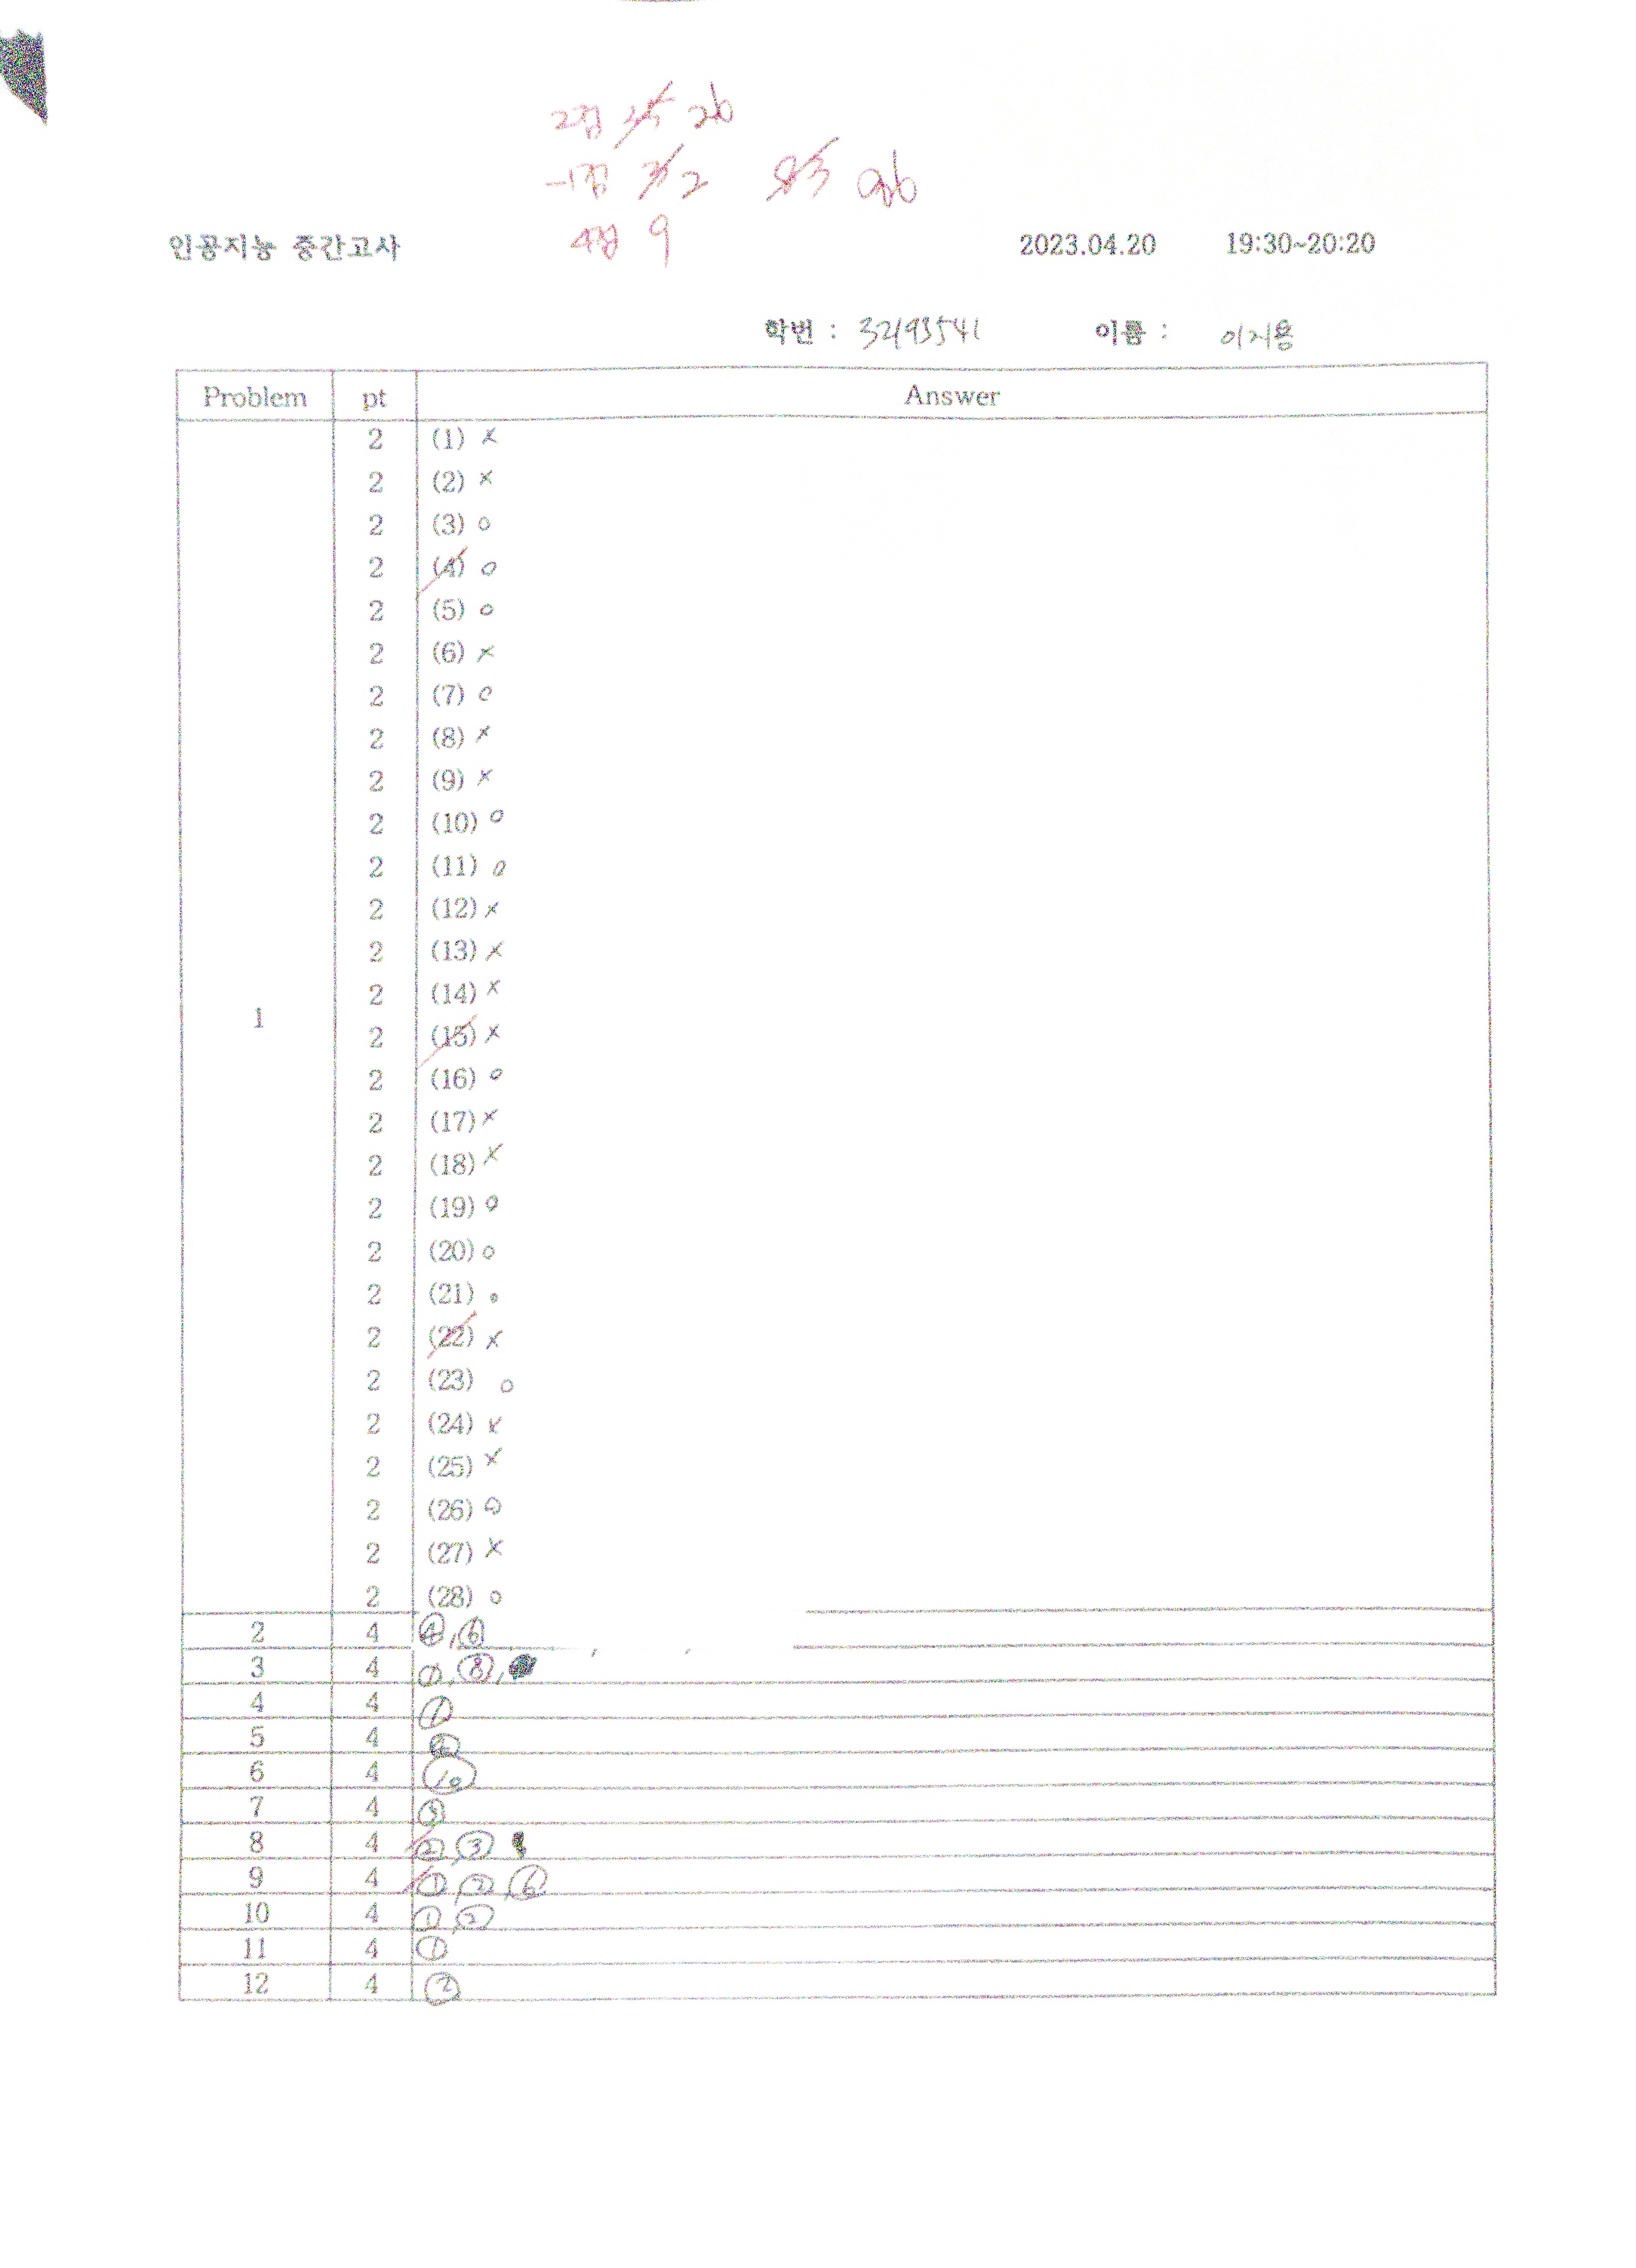 2점 26
-1점 2 86
4점 9
인공지능 중간고사 2023.04.20 19:30~20:20
학번 : 32193541 이름 : 이지용
Problem pt Answer
2 (1) ×
2 (2) ×
2 (3) ○
2 (4) ○
2 (5) ○
2 (6) ×
2 (7) ○
2 (8) ×
2 (9) ×
2 (10) ○
2 (11) ○
2 (12) ×
2 (13) ×
2 (14) ×
1
2 (15) ×
2 (16) ○
2 (17) ×
2 (18) ×
2 (19) ○
2 (20) ○
2 (21) ○
2 (22) ×
2 (23) ○
2 (24) ×
2 (25) ×
2 (26) ○
2 (27) ×
2 (28) ○
2 4 ④, ⑥
3 4 ①, ⑧,
4 4 ①
5 4
6 4 ⑩
7 4 ③
8 4 ②, ③
9 4 ①, ②, ⑥
10 4 ①, ②
11 4 ①
12 4 ②